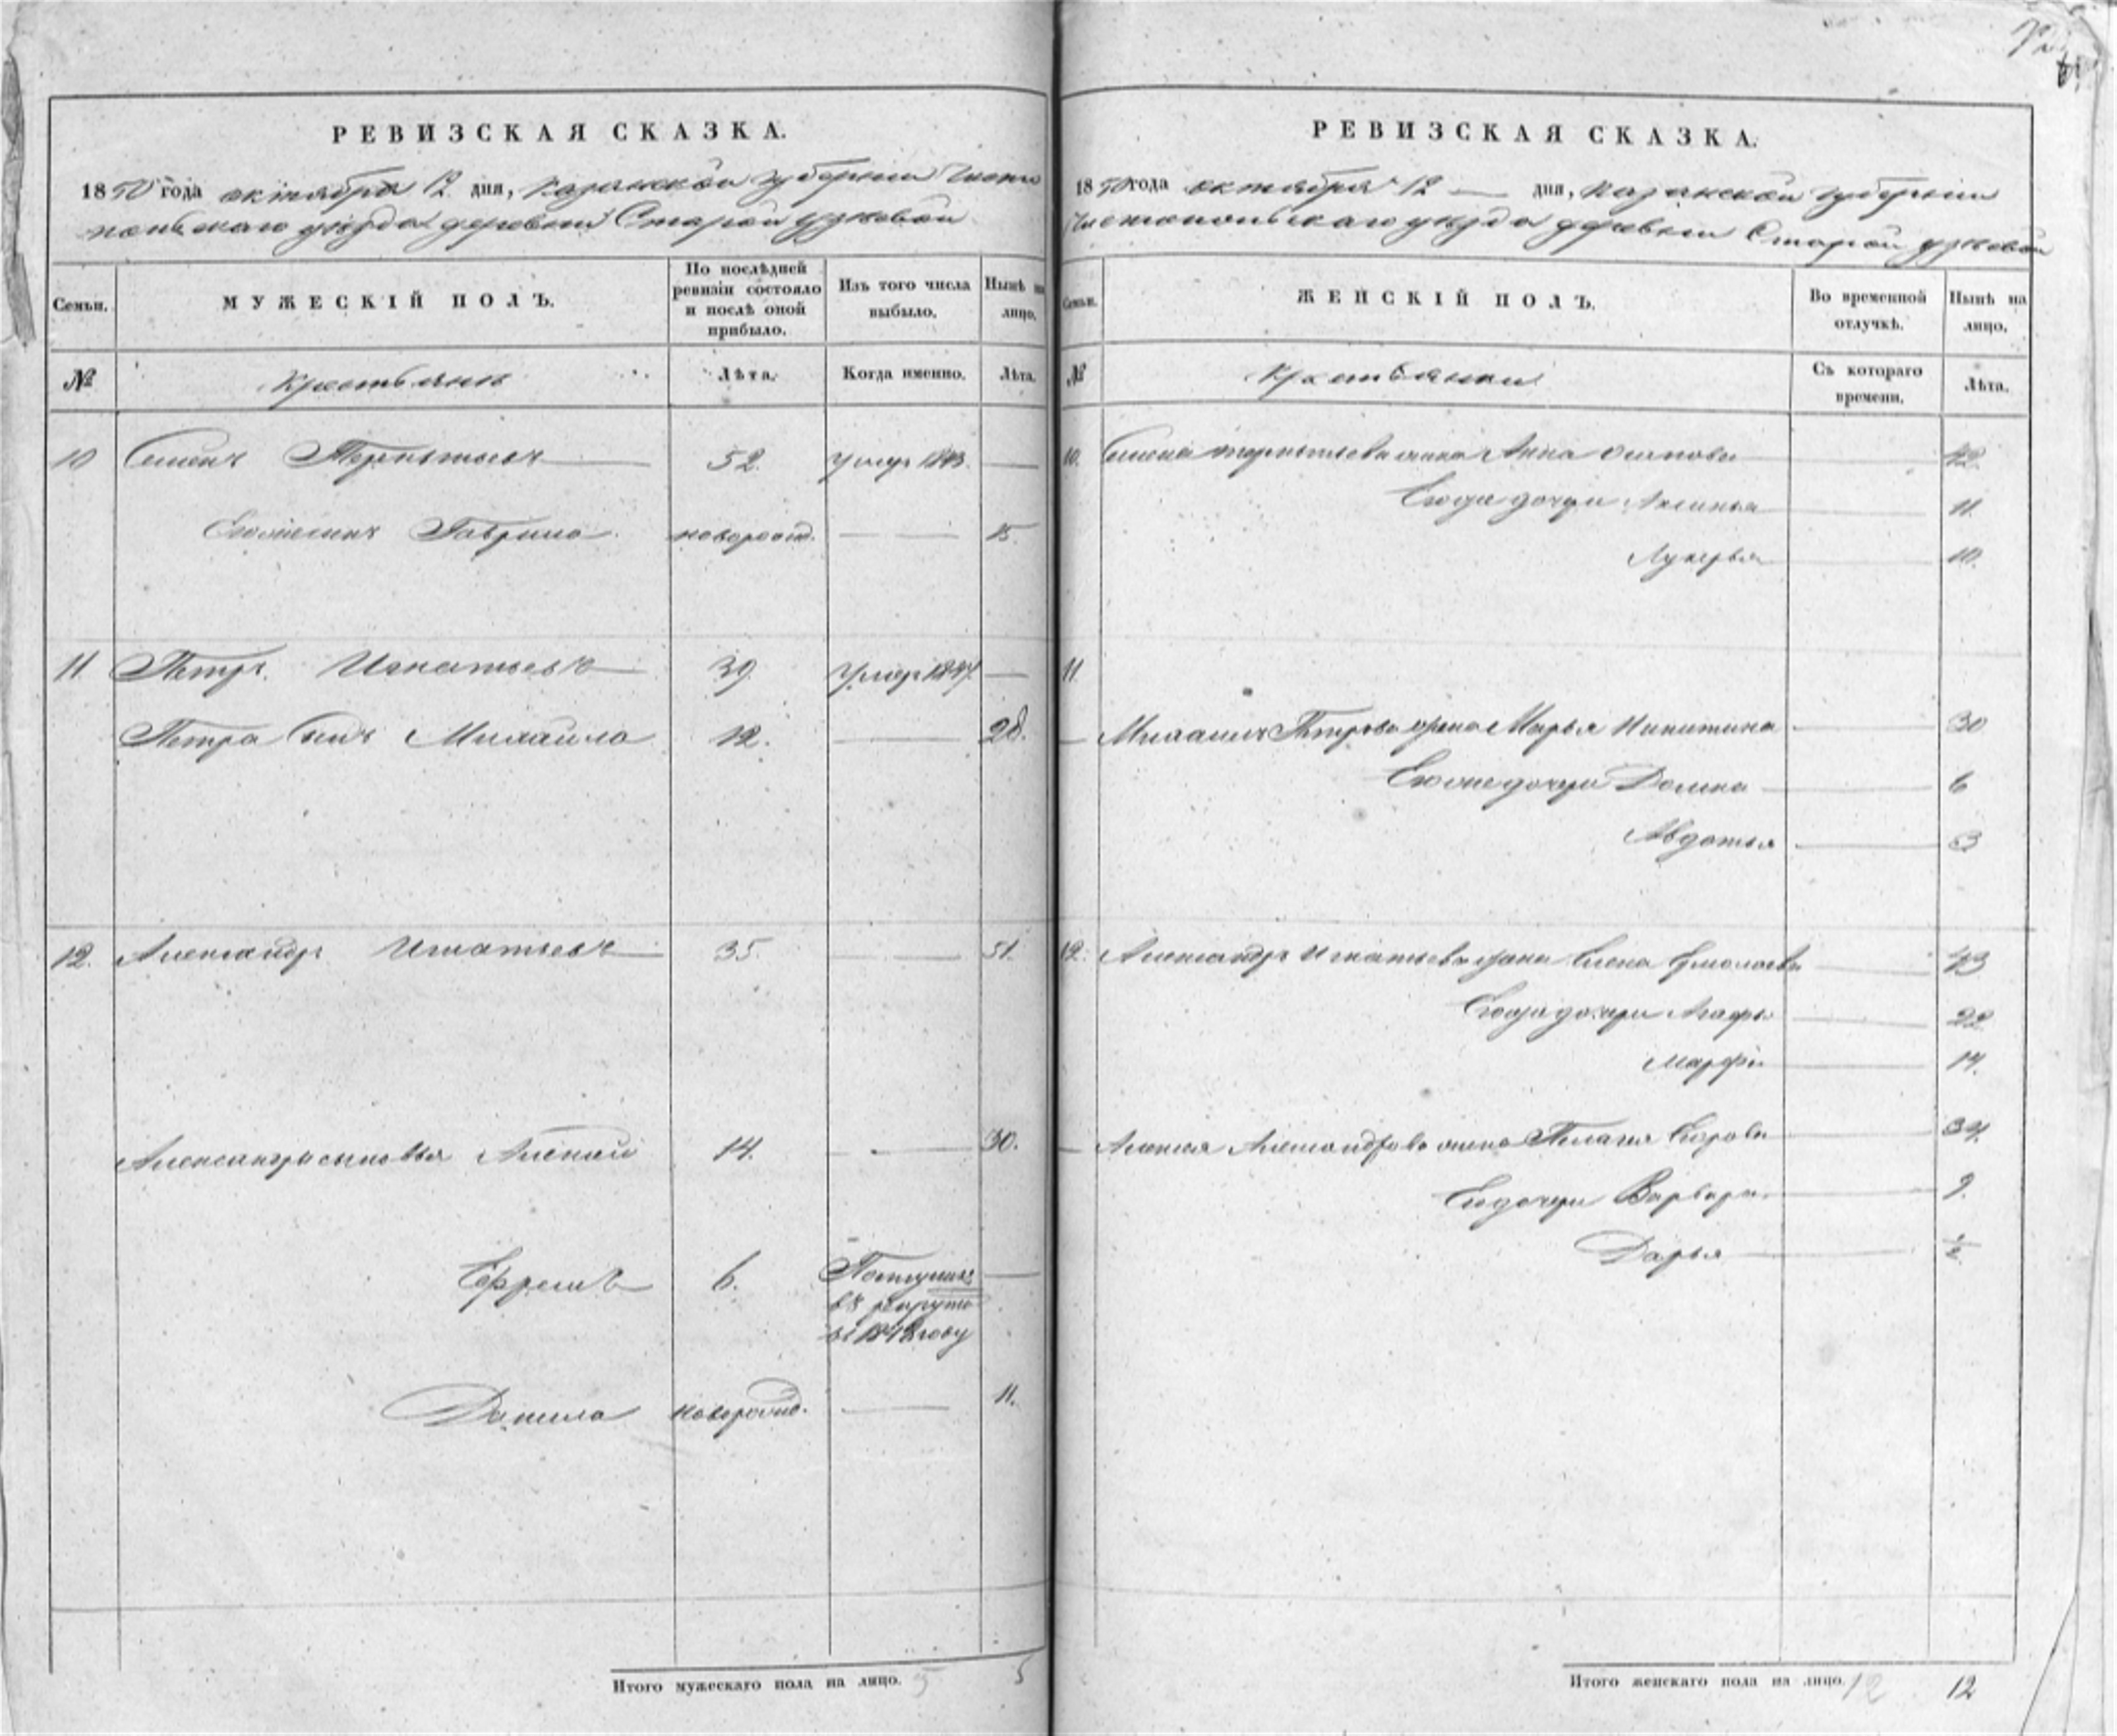 РЕВИЗСКАЯ СКАЗКА.
1850 года октября 12 дня, Казанской губернии Чисто
польскаго уезда деревни Старой Узеевой
Семьи.
МУЖЕСКІЙ ПОЛЪ.
По послѣдней ревизіи состояло и послѣ оной прибыло.
Изъ того числа выбыло.
Нынѣ на лицо.
№
Крестьяне
Лѣта.
Когда именно.
Лѣта.
10 Семенъ Терентьевъ 52. умер 1843.
Гаврила новорожд. 15.
11 Петръ Игнатьевъ 39. Умер 1847
Петра сынъ Михайло 12. 28.
12. Александръ Игнатьевъ 35. 51.
Александра сыновья Алексей 14. 30.
Ефремъ 6. Поступил
въ рекруты
в 1848 году
Данила новорожд. 11.
Итого мужескаго пола на лицо. 5 5
РЕВИЗСКАЯ СКАЗКА.
1850 года октября 12 дня, Казанской губернии
Чистопольскаго уезда деревни Старой Узеевой
Семьи.
ЖЕНСКІЙ ПОЛЪ.
Во временной отлучкѣ.
Нынѣ на лицо.
№
Крестьянки
Съ котораго времени.
Лѣта.
10. Семена Терентьева жена Анна Осипова 42.
Его дочери Аксинья 11.
Лукерья 10.
11.
Михайла Петрова жена Марья Никитина 30
Его дочери Домна 6
Авдотья 3
12. Александра Игнатьева жена Елена Ермолаева 43
дочери Агафья 22
Марфа 14.
Алексея Александрова жена Пелагия 34.
Его дочери Варвара 9.
Дарья ½
Итого женскаго пола на лицо. 12 12